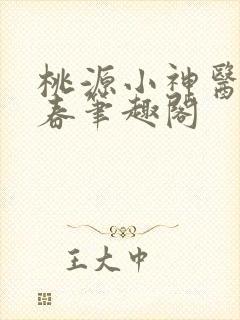 桃源小神醫
春筆趣閣
王大中